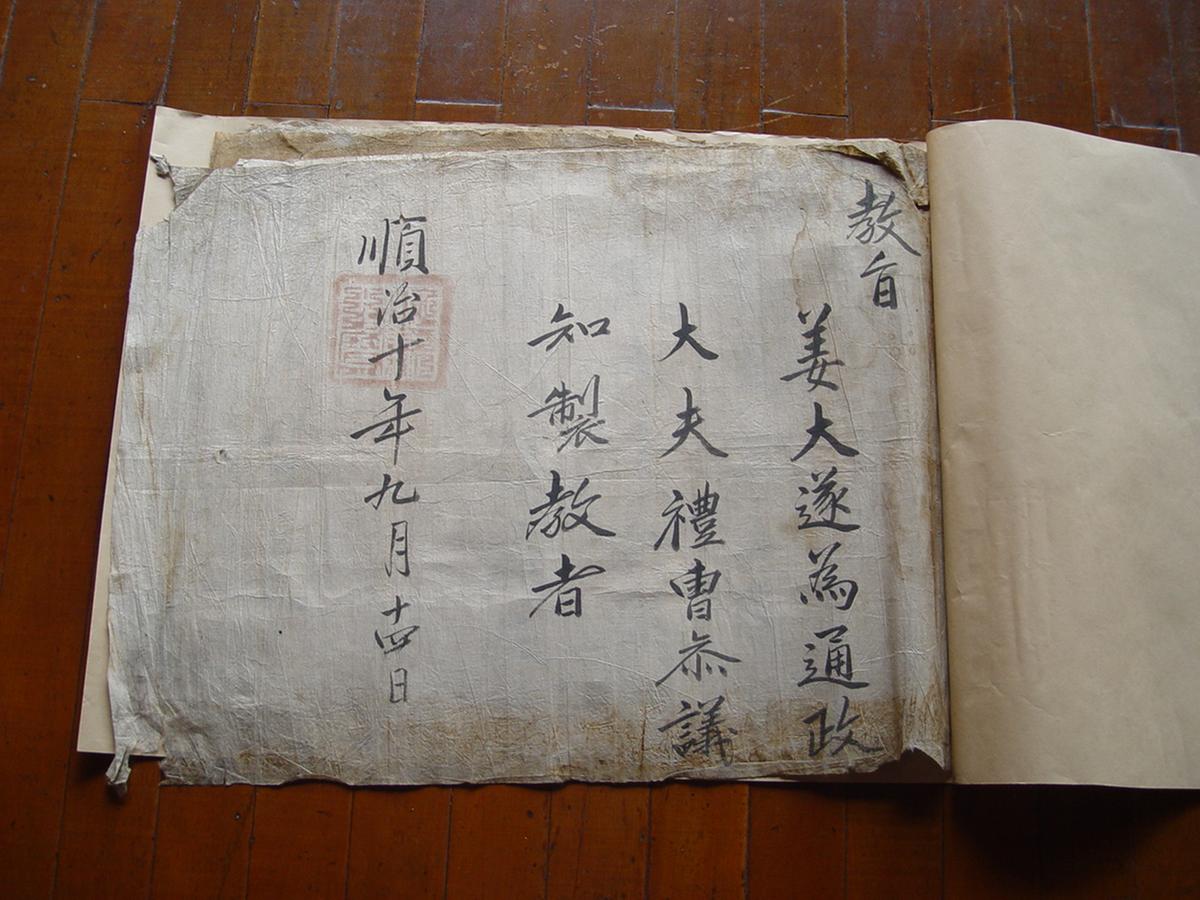 教旨
姜大遂為通政
大夫禮曺叅議
知製教者
順治十年九月十四日